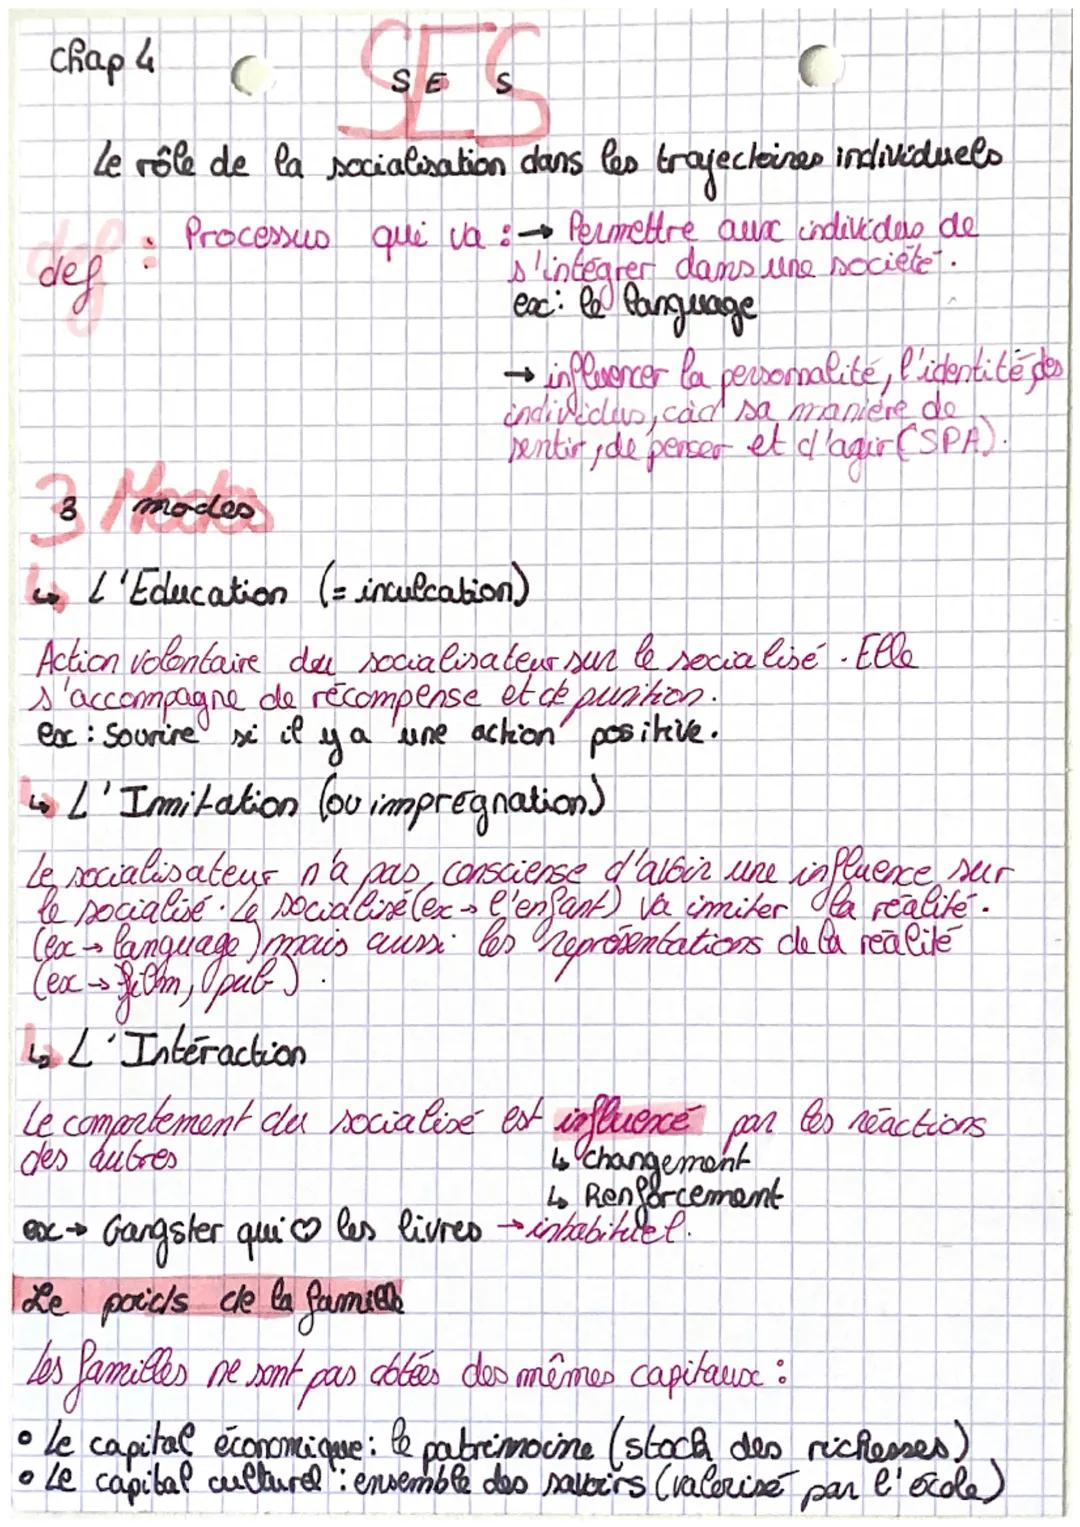 Chap 4
SES
Le rôle de la socialisation dans les trajectoires individuels
def : Processus qui va : → Permettre aux individus de
s'intégrer dans une société.
ex: le language
→ influencer la personnalité, l'identité des
individus, càd sa manière de
sentir, de penser et d'agir (SPA).
3 modes
↳ L'Education (= inculcation)
Action volontaire du socialisateur sur le socialisé. Elle
s'accompagne de récompense et de punition.
ex : Sourire si il y a une action positive.
↳ L'Immitation (ou imprégnation)
Le socialisateur n'a pas consciense d'avoir une influence sur
le socialisé. Le socialisé (ex → l'enfant) va imiter la réalité.
(ex → language) mais aussi les représentations de la réalité
(ex → film, pub).
↳ L'Intéraction
Le comportement du socialisé est influencé par les réactions
des autres
↳ changement
↳ Renforcement
ex → Gangster qui ♡ les livres → inhabituel.
Le poids de la famille
Les familles ne sont pas dotées des mêmes capitaux :
• Le capital économique : le patrimoine (stock des richesses)
• Le capital culturel : ensemble des savoirs (valorisé par l'école)